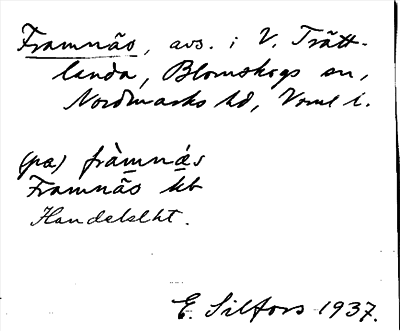 Framnäs, avs. i V. Trätt-
landa, Blomskogs sn,
Nordmarks hd, Vrml l.
(pa) fràmnás
Framnäs kb
Handelslht.
E. Silfors 1937.